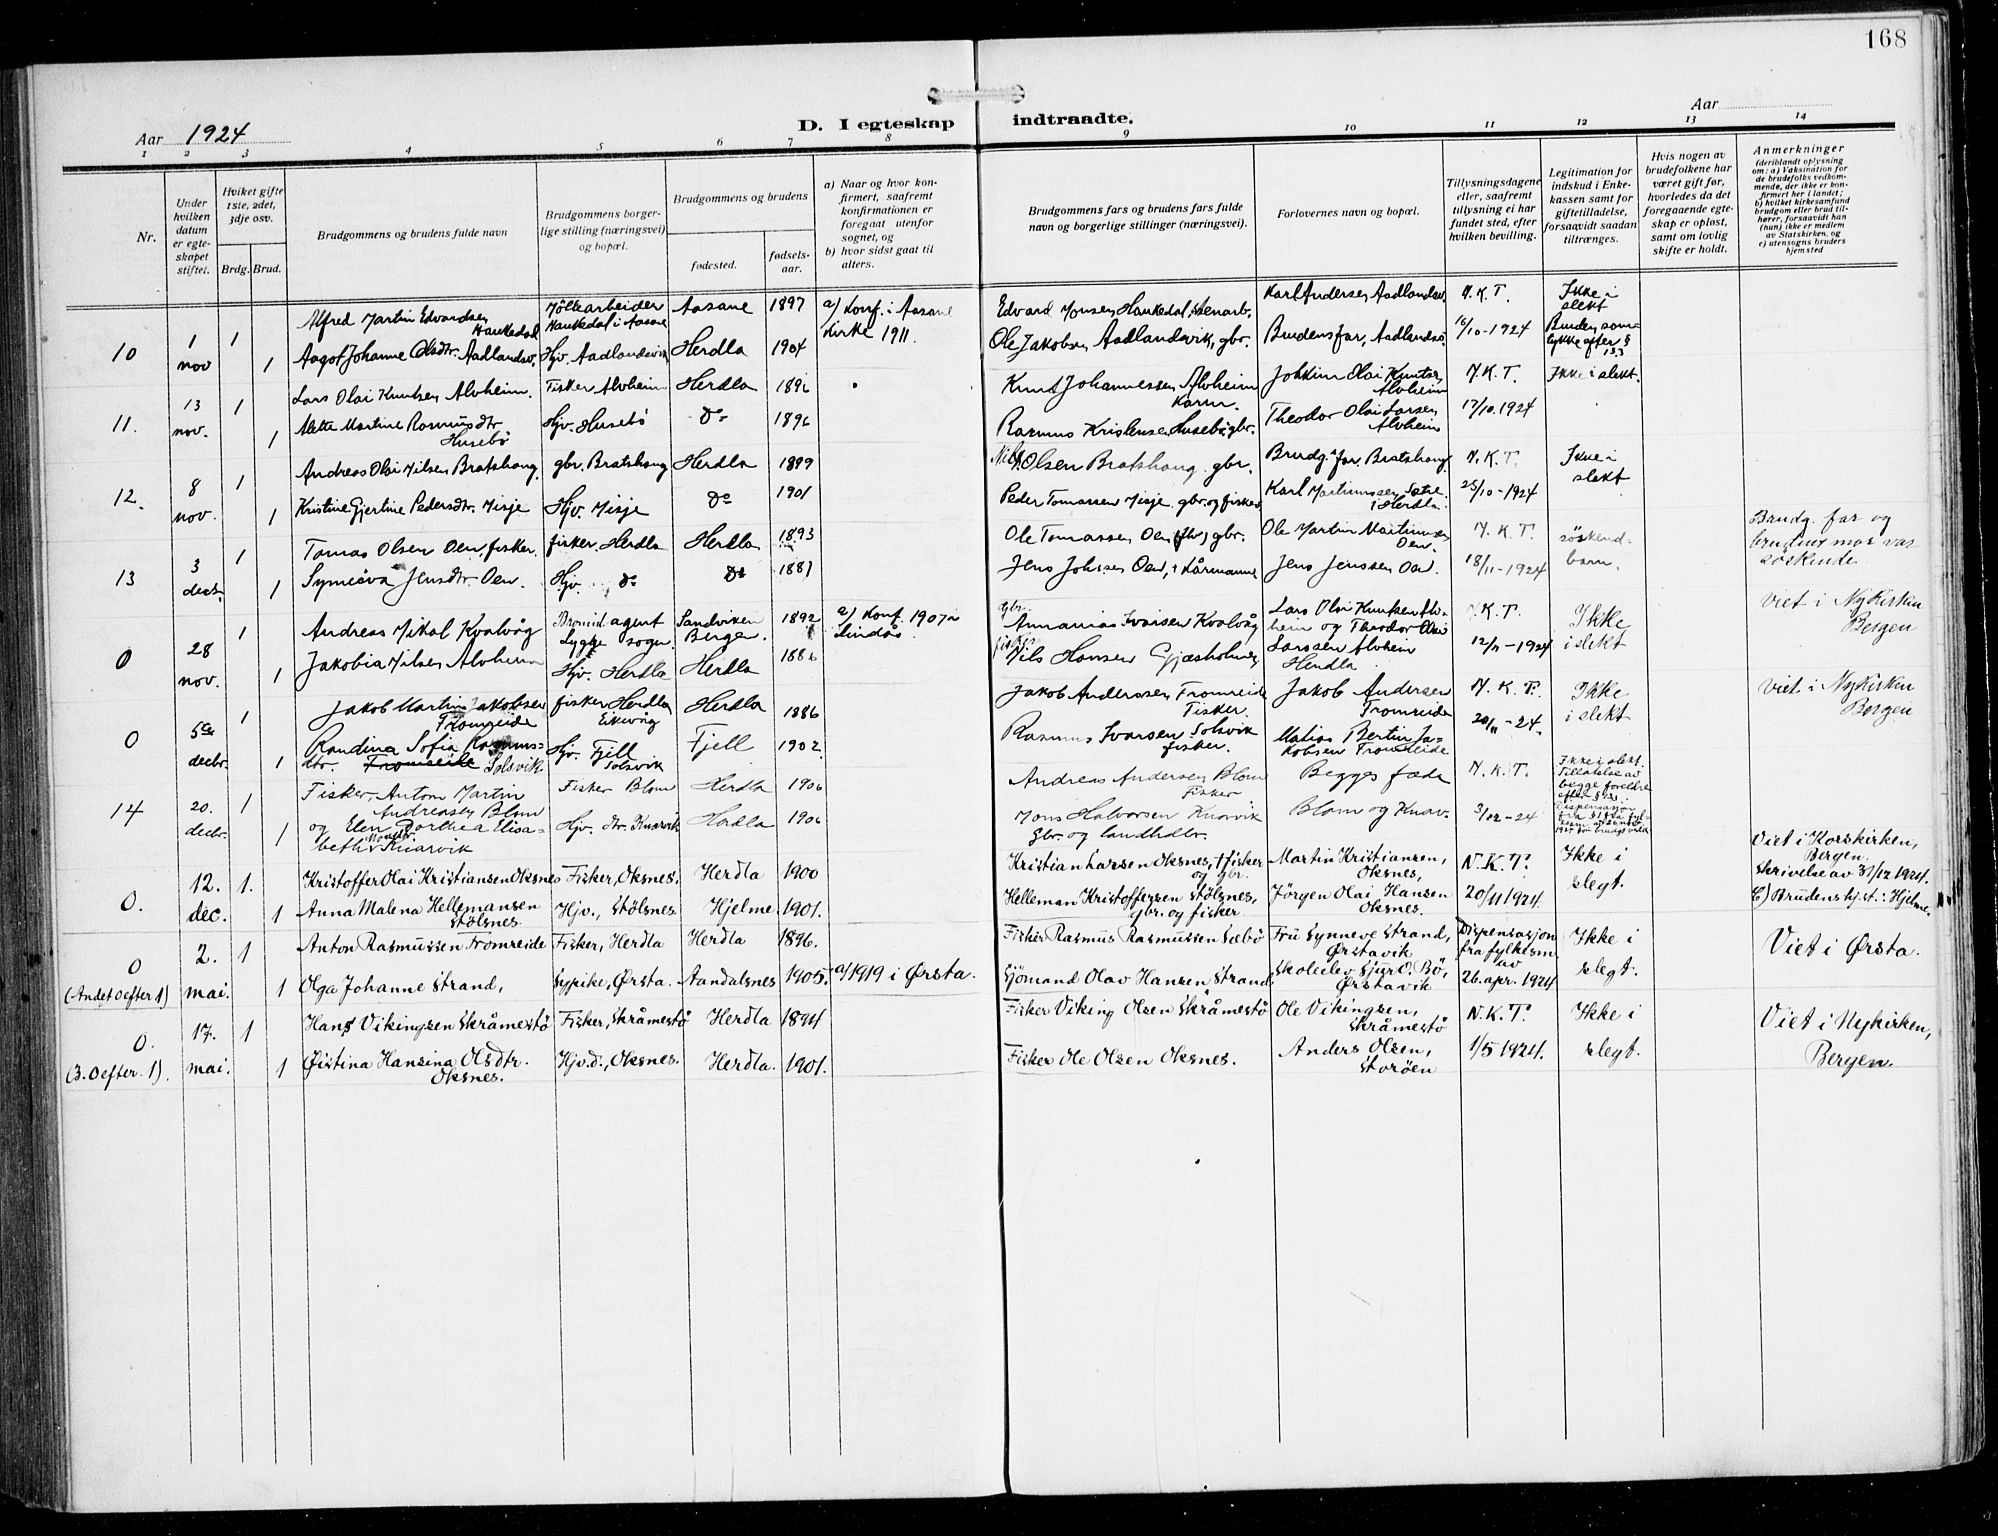 168
Aar 1924
D. I egteskap indtraadte.
Aar
1 2 3 4 5 6 7 8 9 10 11 12 13 14
Nr.
Under hvilken datum er egteskapet stiftet.
Hviket gifte 1ste, 2det, 3dje osv.
Brdg. Brud.
Brudgommens og brudens fulde navn
Brudgommens borgerlige stilling (næringsvei) og bopæl.
Brudgommens og brudens
fødested.
fødselsaar.
a) Naar og hvor konfirmert, saafremt konfirmationen er foregaat utenfor sognet, og
b) hvor sidst gaat til alters.
Brudgommens fars og brudens fars fulde navn og borgerlige stillinger (næringsvei).
Forlovernes navn og bopæl.
Tillysningsdagene eller, saafremt tillysning ei har fundet sted, efter hvilken bevilling.
Legitimation for indskud i Enkekassen samt for giftetilladelse, forsaavidt saadan tiltrænges.
Hvis nogen av brudefolkene har været gift før, hvorledes da det foregaaende egteskap er opløst, samt om lovlig skifte er holdt.
Anmerkninger
(deriblandt oplysning om: a) Vaksination for de brudefolks vedkommende, der ikke er konfirmert her i landet; b) hvilket kirkesamfund brudgom eller brud tilhører, forsaavidt han (hun) ikke er medlem av Statskirken, og c) utensogns bruders hjemsted
10 1 nov 1 Alfred Martin Edvardsen Haukedal Haukedal i Aasane Aasane 1897 a) Konf. i Aasane kirke 1911. Edvard Haukedal, Karl Andersen Aadlandsv. N. K. T. Ikke i slekt
1 Aagot Johanne Olsdtr. Aadlandsv. Hjv. Aadlandsvik Herdla 1904 Ole Jakobsen Aadlandsvik, gbr. Brudens far, Aadlandsv. 16/10-1924
11. 13 nov. 1 Lars Olai Knutsen Alvheim. Fisker Alvheim Herdla 1896 Knut Johannessen Alvheim Johkim Olai Knutsen Alvheim N. K. T. Ikke i slekt.
1 Alette Martine Rasmusdtr. Husebø Hjv. Husebø do 1896 Rasmus Kristensen Husebø gbr. Theodor Olai Larsen Alvheim 17/10.1924
12. 8 nov. 1 Andreas Olai Nilsen Bratshaug, gbr. Bratshaug Herdla 1899 Nils Olsen Bratshaug, gbr. Brudg. far, Bratshaug N. K. T. Ikke i slekt
1 Kristine Gjertine Pedersdtr. Misje Hjv. Misje do 1901 Peder Tomassen Misje gbr. og fisker Karl Martinussen Sætre i Herdla. 25/10-1924
13 3 decbr. 1 Tomas Olsen Oen, fisker. fisker, Herdla Herdla 1893 Ole Tomassen Oen gbr. Ole Martin Martinussen Oen. N. K. T. søskendbarn. Brudg. far og brudens mor var søskende
1 Jensdtr. Oen. Hjv. do do 1887 Jens Oen, Jens Jenssen Oen. 18/11-1924
0 28 nov. 1 Andreas Mikal Kvalvåg agent Lygre sogn. Sandviken Bergen. 1892 a) Konf. 1907 i Lindås gbr. Annanias Ivarsen Kvalvåg Lars Olai Knutsen Alvheim og Theodor Olai Larssen Alvheim Herdla N. K. T. Ikke i slekt Viet i Nykirken Bergen
1 Jakobia Nilsen Alvheim Hjv. Herdla Herdla fisker Nils Hansen Gjæsholmen 12/11-1924
0 5te decbr. 1 Jakob Martin Jakobsen Fromreide fisker Herdla Eikevåg Herdla 1886 Jakob Anderssen Fromreide Fisker. Jakob Andersen Fromreide N. K. T. Ikke i slekt Viet i Nykirken Bergen
1 Randina Sofia Rasmusdtr. Fromreide Solsvik Hjv. Fjell Solsvik Fjell 1902. Rasmus Ivarsen Solsvik fisker. Matias Bertin Jakobsen Fromreide 20/11-24.
14 20. decbr. 1 Fisker, Anton Martin Andreasen Blom Fisker Blom Herdla 1906 Andreas Andersen Blom Fisker Begges fædre N. K. T. Ikke i slekt. Tilladelse av begge foreldre
1 og Elen Dorthea Elisabeth Knarvik Hjv. Knarvik Herdla 1906 Mons Halvorsen Knarvik Gbr. og landhdlr. Blom og Knarvik 3/12-24
0. 12. dec. 1. Kristoffer Olai Kristiansen Oksnes Fisker, Oksnes. Herdla 1900 Kristian Larsen Oksnes, fisker og gbr. Martin Kristiansen, Oksnes, N. K. T. Ikke i slegt. Viet i Korskirken, Bergen. Skrivelse av 31/12 1924.
1 Anna Malena Hellemansen Stölsnes. Hjv., Stölsnes. Hjelme 1901. Helleman Kristoffersen Stölsnes, gbr. og fisker Jörgen Olai Hansen Oksnes. 20/11 1924. C) Brudens hj.st.: Hjelme.
0 (Andet 0 efter 1) 2. mai. 1 Anton Rasmussen Fromreide Fisker, Herdla Herdla 1896. Fisker Rasmus Rasmussen Sæbö Fru Synneve Strand, Ørstavik Dispensasjon fra fylkesm. av 26. apr. 1924 Ikke i slegt. Viet i Ørsta.
1 Olga Johanne Strand, Syrike, Ørsta. Aandalsnes 1905. a) 1919 i Ørsta. Sjömand Olav Hansen Strand Skoleelev Sjur O. Bö, Ørstavik
0. (3. 0 efter 1). 17. mai. 1 Hans Vikingsen Skråmestö Fisker, Skråmestö Herdla 1894 Fisker Viking Olsen Skråmestö Ole Vikingsen, Skråmestö N. K. T. Ikke i slegt. Viet i Nykirken, Bergen.
1 Øistina Hansina Olsdtr. Oksnes. Hjv.d., Oksnes. Herdla. 1901. Fisker Ole Olsen Oksnes. Anders Olsen, Storöen 1/5 1924.